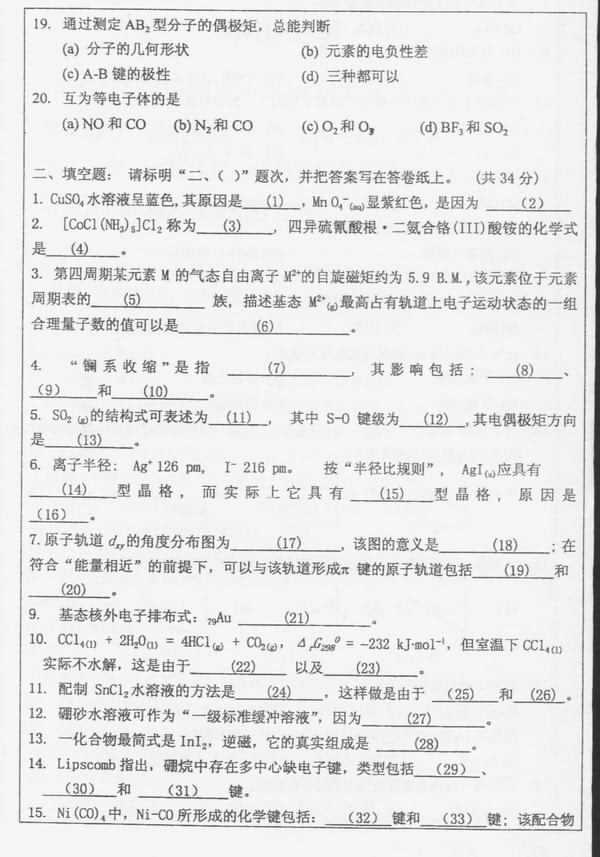 19. 通过测定 AB₂型分子的偶极矩，总能判断
(a) 分子的几何形状 (b) 元素的电负性差
(c) A-B 键的极性 (d) 三种都可以
20. 互为等电子体的是
(a) NO 和 CO (b) N₂和 CO (c) O₂和 O₃ (d) BF₃ 和 SO₂
二、填空题： 请标明“二、（ ）”题次，并把答案写在答卷纸上。 （共 34 分）
1. CuSO₄水溶液呈蓝色,其原因是 (1) ，Mn O₄⁻(aq)显紫红色，是因为 (2)
2. [CoCl(NH₃)₅]Cl₂ 称为 (3) ，四异硫氰酸根·二氨合铬(III)酸铵的化学式
是 (4) 。
3. 第四周期某元素 M 的气态自由离子 M²⁺的自旋磁矩约为 5.9 B.M.,该元素位于元素
周期表的 (5) 族，描述基态 M²⁺(g)最高占有轨道上电子运动状态的一组
合理量子数的值可以是 (6) 。
4. “镧系收缩”是指 (7) ，其影响包括: (8) 、
(9) 和 (10) 。
5. SO₂ (g)的结构式可表述为 (11) ， 其中 S-O 键级为 (12) ,其电偶极矩方向
是 (13) 。
6. 离子半径: Ag⁺ 126 pm, I⁻ 216 pm。 按“半径比规则”， AgI(s)应具有
(14) 型晶格，而实际上它具有 (15) 型晶格，原因是
(16) 。
7. 原子轨道 dxy的角度分布图为 (17) ,该图的意义是 (18) ;在
符合“能量相近”的前提下，可以与该轨道形成π 键的原子轨道包括 (19) 和
(20) 。
9. 基态核外电子排布式: ₇₉Au (21) 。
10. CCl₄(l) + 2H₂O(l) = 4HCl(g) + CO₂(g), ΔrG298⁰ = -232 kJ·mol⁻¹, 但室温下 CCl₄(l)
实际不水解，这是由于 (22) 以及 (23) 。
11. 配制 SnCl₂水溶液的方法是 (24) ，这样做是由于 (25) 和 (26) 。
12. 硼砂水溶液可作为“一级标准缓冲溶液”，因为 (27) 。
13. 一化合物最简式是 InI₂，逆磁，它的真实组成是 (28) 。
14. Lipscomb 指出，硼烷中存在多中心缺电子键，类型包括 (29) 、
(30) 和 (31) 键。
15. Ni(CO)₄中，Ni-CO 所形成的化学键包括: (32) 键和 (33) 键; 该配合物